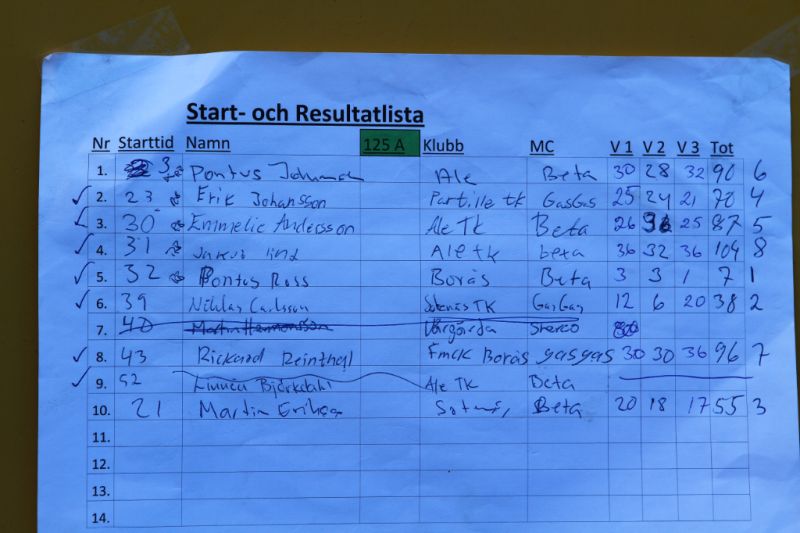 Start- och Resultatlista
Nr Starttid Namn 125 A Klubb MC V 1 V 2 V 3 Tot
1. 3 Pontus Ale Beta 30 28 32 90 6
2. 23 Erik Johansson Partille tk GasGas 25 24 21 70 4
3. 30 Emmelie Andersson Ale TK Beta 26 36 25 87 5
4. 31 Jakob lind Ale tk beta 36 32 36 104 8
5. 32 Pontus Ross Borås Beta 3 3 1 7 1
6. 39 Niklas Carlsson Sotenäs TK GasGas 12 6 20 38 2
7. 40 Martin Hermansson Vårgårda
8. 43 Rickard Reinthall Fmck Borås gasgas 30 30 36 96 7
9. 52 Linnéa Björkdahl Ale TK Beta
10. 21 Martin Beta 20 18 17 55 3
11.
12.
13.
14.